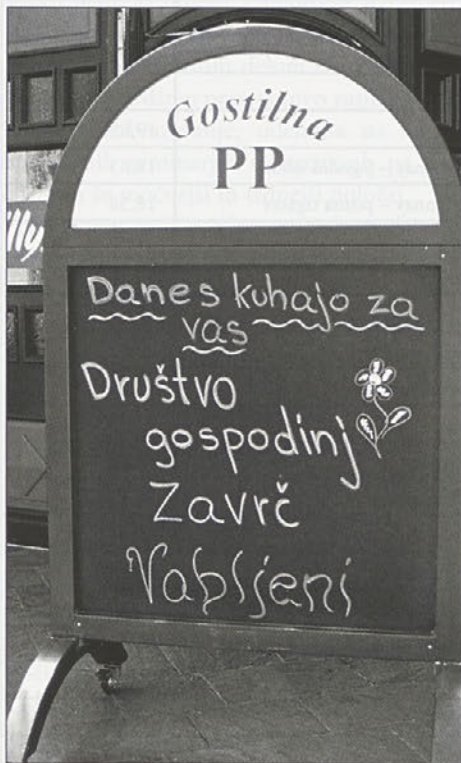 Gostilna
PP
illy
Danes kuhajo za
vas
Društvo
gospodinj
Zavrč
Vabljeni